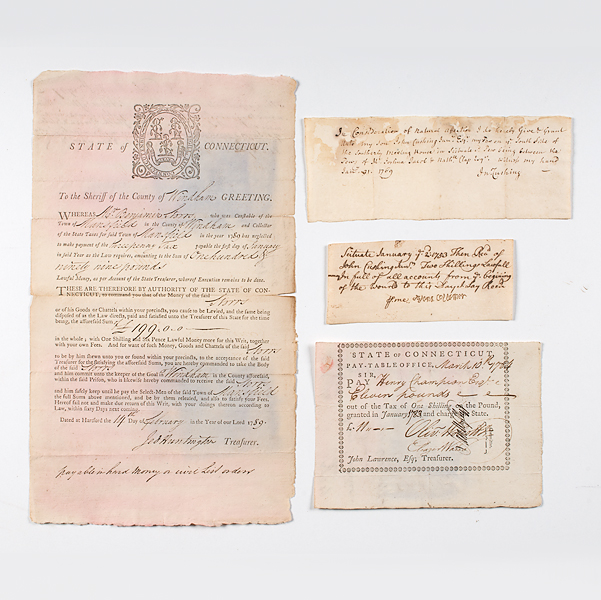 STATE of CONNECTICUT.
To the Sheriff of the County of Windham GREETING.
WHEREAS Mr. Benjamin Storrs who was Constable of the
Town of Mansfield in the County of Windham and Collector
of the State Taxes for said Town of Mansfield in the year 178 has neglected
to make payment of the Tax payable the first day of January
in said Year as the Law requires, amounting to the Sum of One hundred &
ninety nine pounds
Lawful Money, as per Account of the State Treasurer, whereof Execution remains to be done.
THESE ARE THEREFORE BY AUTHORITY OF THE STATE OF CON-
NECTICUT, to command you that of the Money of the said Storrs
or of his Goods or Chattels within your precincts, you cause to be Levied, and the same being
disposed of as the Law directs, paid and satisfied unto the Treasurer of this State for the time
being, the aforesaid Sum of £199,0,0
in the whole; with One Shilling and Six Pence Lawful Money more for this Writ, together
with your own Fees. And for want of such Money, Goods and Chattels of the said Storrs
to be by him shewn unto you or found within your precincts, to the acceptance of the
Treasurer for the satisfying the aforesaid Sum, you are hereby commanded to take the Body
of the said Storrs
and him commit unto the keeper of the Goal of Windham in the County aforesaid,
within the said Prison, who is likewise hereby commanded to receive the said Storrs
and him safely keep until he pay the Select-Men of the said Town of Mansfield
the full Sums above mentioned, and be by them released, and also to satisfy your Fees.
Hereof fail not and make due return of this Writ with your doings thereon according to
Law, within sixty Days next coming.
Dated at Hartford the 14th Day of February in the Year of our Lord 1789.
Jed Huntington Treasurer.
payable in hard money or civil List orders
In Consideration of Natural affection I do hereby Give & Grant
unto my Son John Cushing Junr. Esqr. my Pew on ye South Side of
the Southerly Meeting House in Scituate Pew being between the
Pews of Mr. Joshua & Nathl. Clap Esqr. Witness my hand
Jan. 31. 1769
Jn Cushing
Scituate January ye 1783 Then Recd of
John Cushing Junr. Two Shillings
In full of all accounts from ye begining
of the world to this Day Recd
STATE OF CONNECTICUT
PAY-TABLE OFFICE, March 1784
SIR,
PAY Henry Champion Esqr.
Eleven pounds
out of the Tax of One Shilling on the Pound,
granted in January 1783 and charge the State.
£. 11
John Lawrence, Esq; Treasurer.